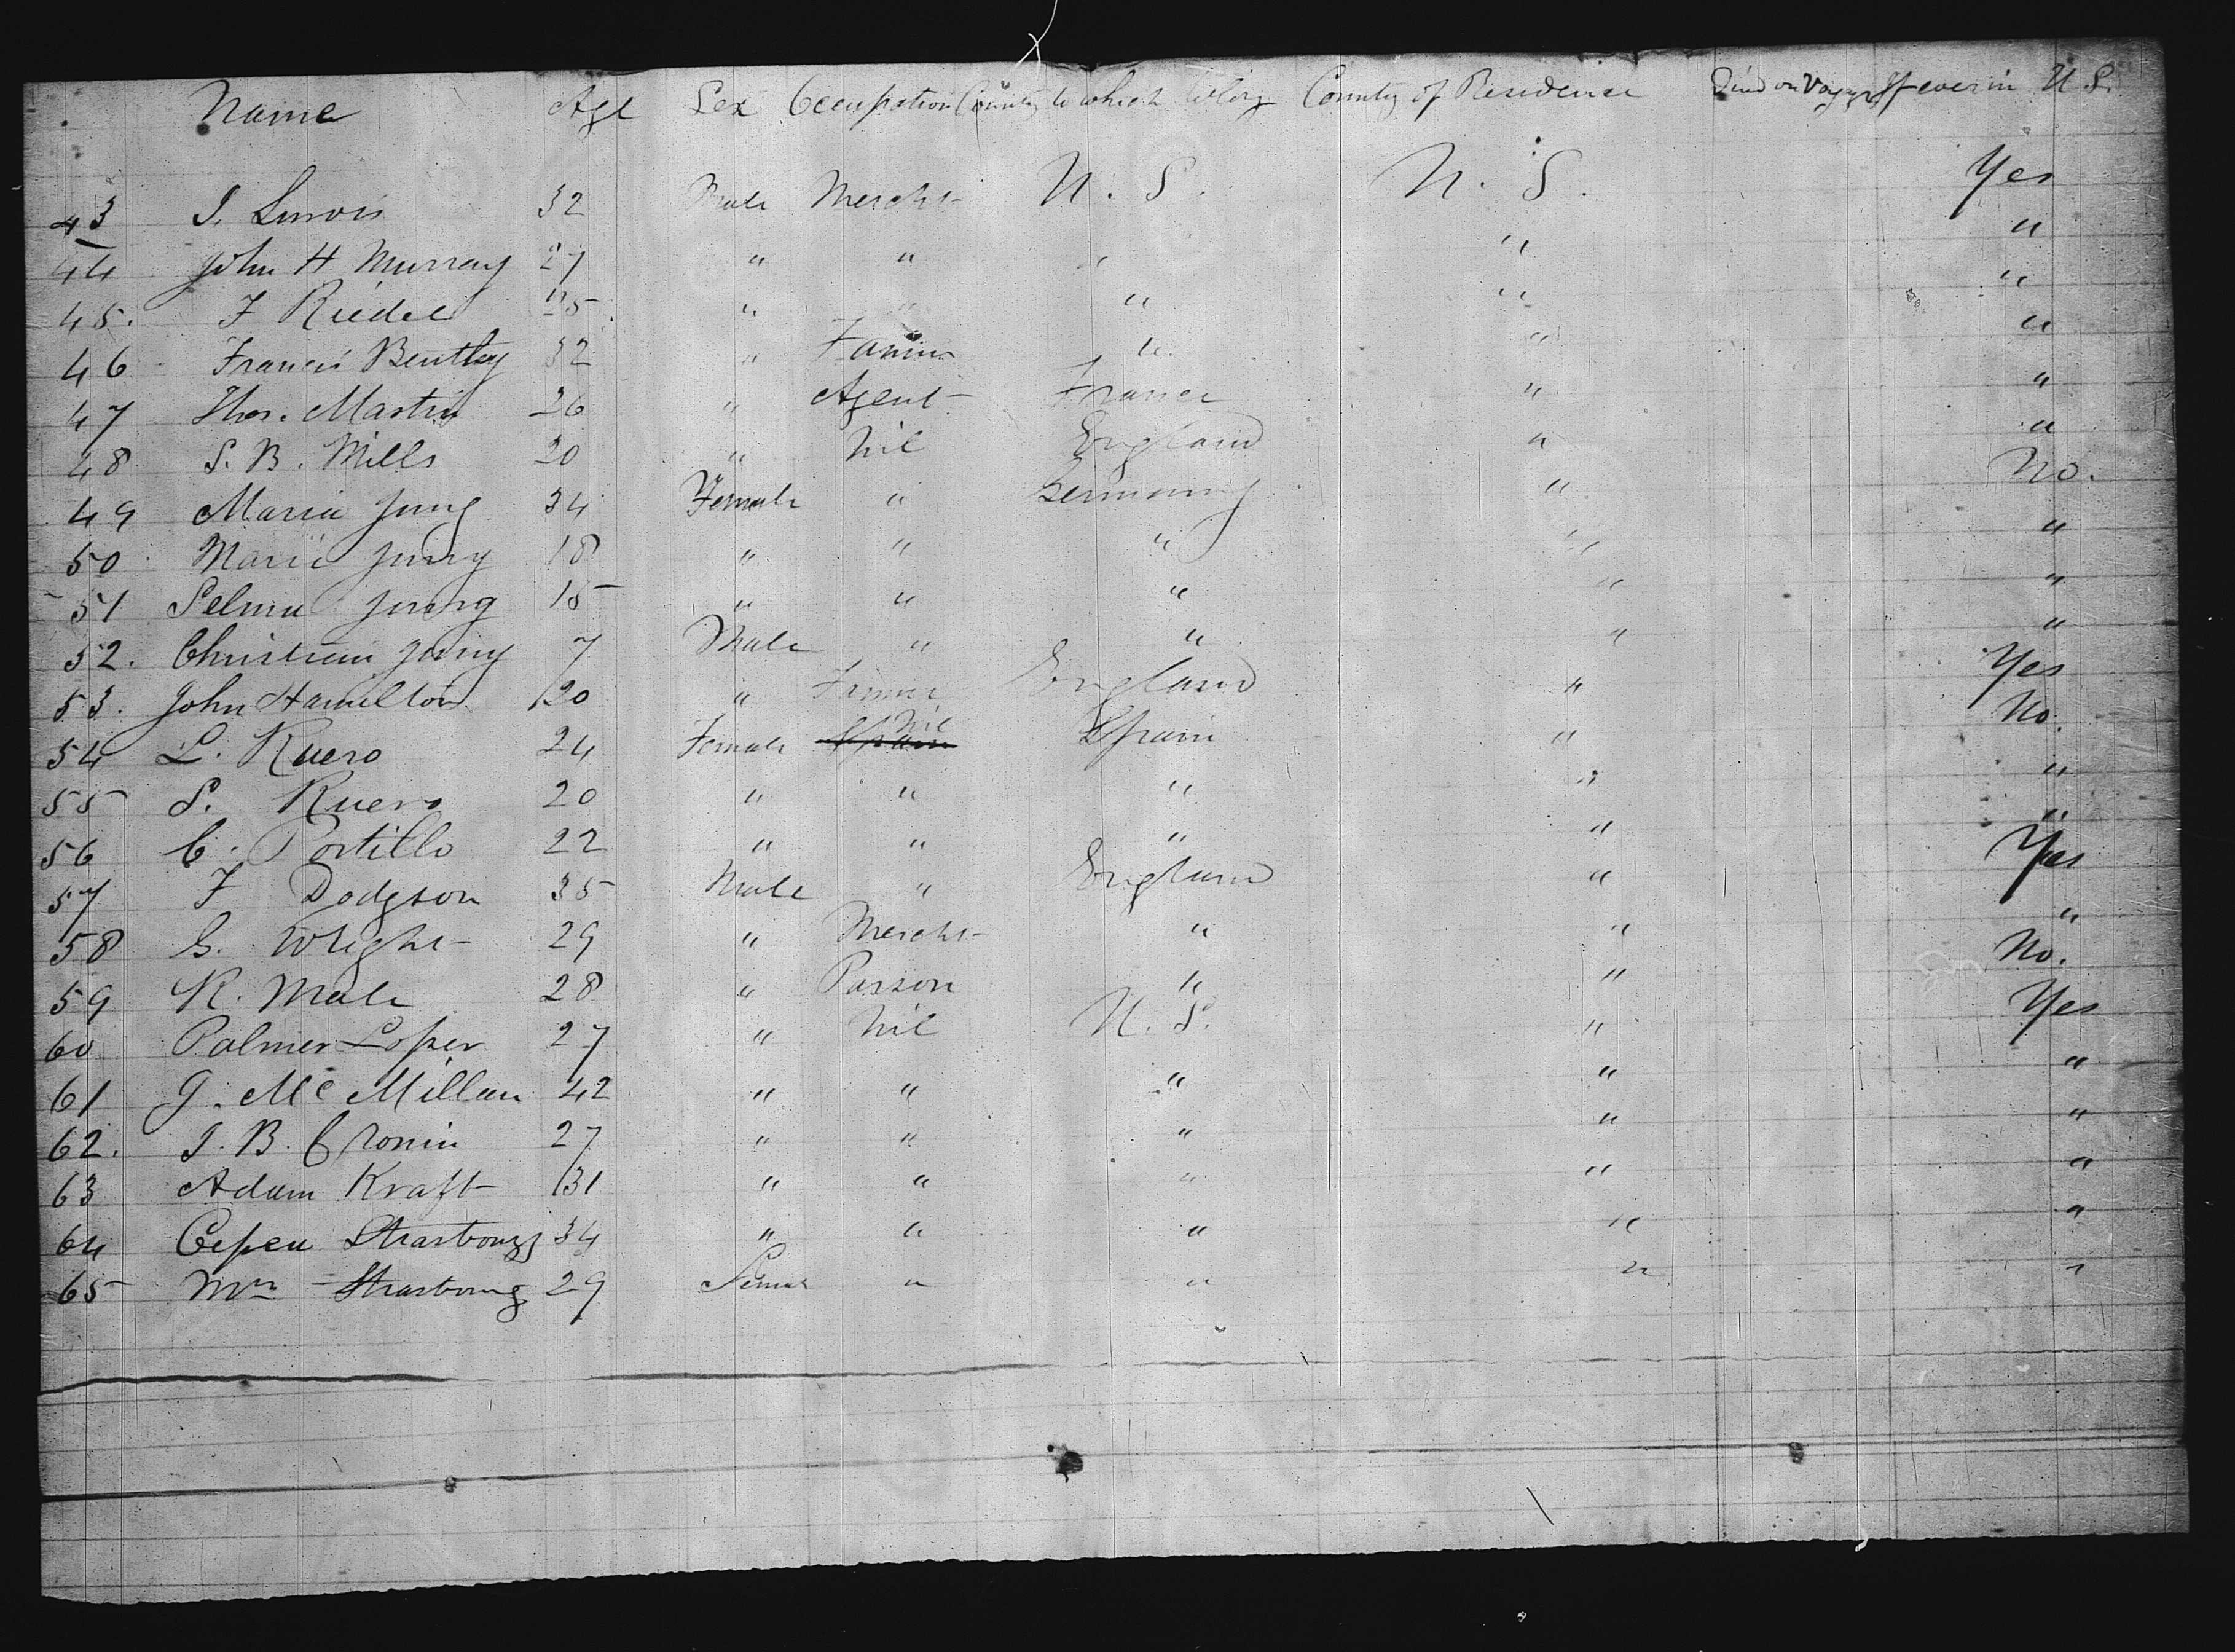 Name Age Sex Occupation County to which belong County of Residence Died on Voyage If ever in U.S.
43 J. 32 Male Mercht U.S. U.S. Yes
44 John H Murray 27 " " " " "
45. F Riedel 25 " " " " "
46 Francis Bentley 32 " Farmer " " "
47 Thos. Martin 26 " Agent France " "
48 S. B. Mills 20 " Nil England " "
49 Maria Jung 34 Female " Germany " No.
50 Marie Jung 18 " " " " "
51 Selma Jung 15 " " " " "
52. Christian Jung 7 Male " " " "
53. John Hamilton 20 " Farmer England " Yes
54 L. Ruero 24 Female Spain Nil Spain " No.
55 S. Ruero 20 " " " " "
56 C. Portillo 22 " " " " "
57 F Dodgson 35 Male " England " Yes
58 G. Wright 29 " Mercht " " "
59 R. Male 28 " Parson " " No.
60 Palmer Loper 27 " Nil U.S. " Yes
61 G. Mc Millan 42 " " " " "
62. J. B. Cronin 27 " " " " "
63 Adam Kraft 31 " " " " "
64 Strasbourg 34 " " " " "
65 Mrs Strasbourg 29 Female " " " "